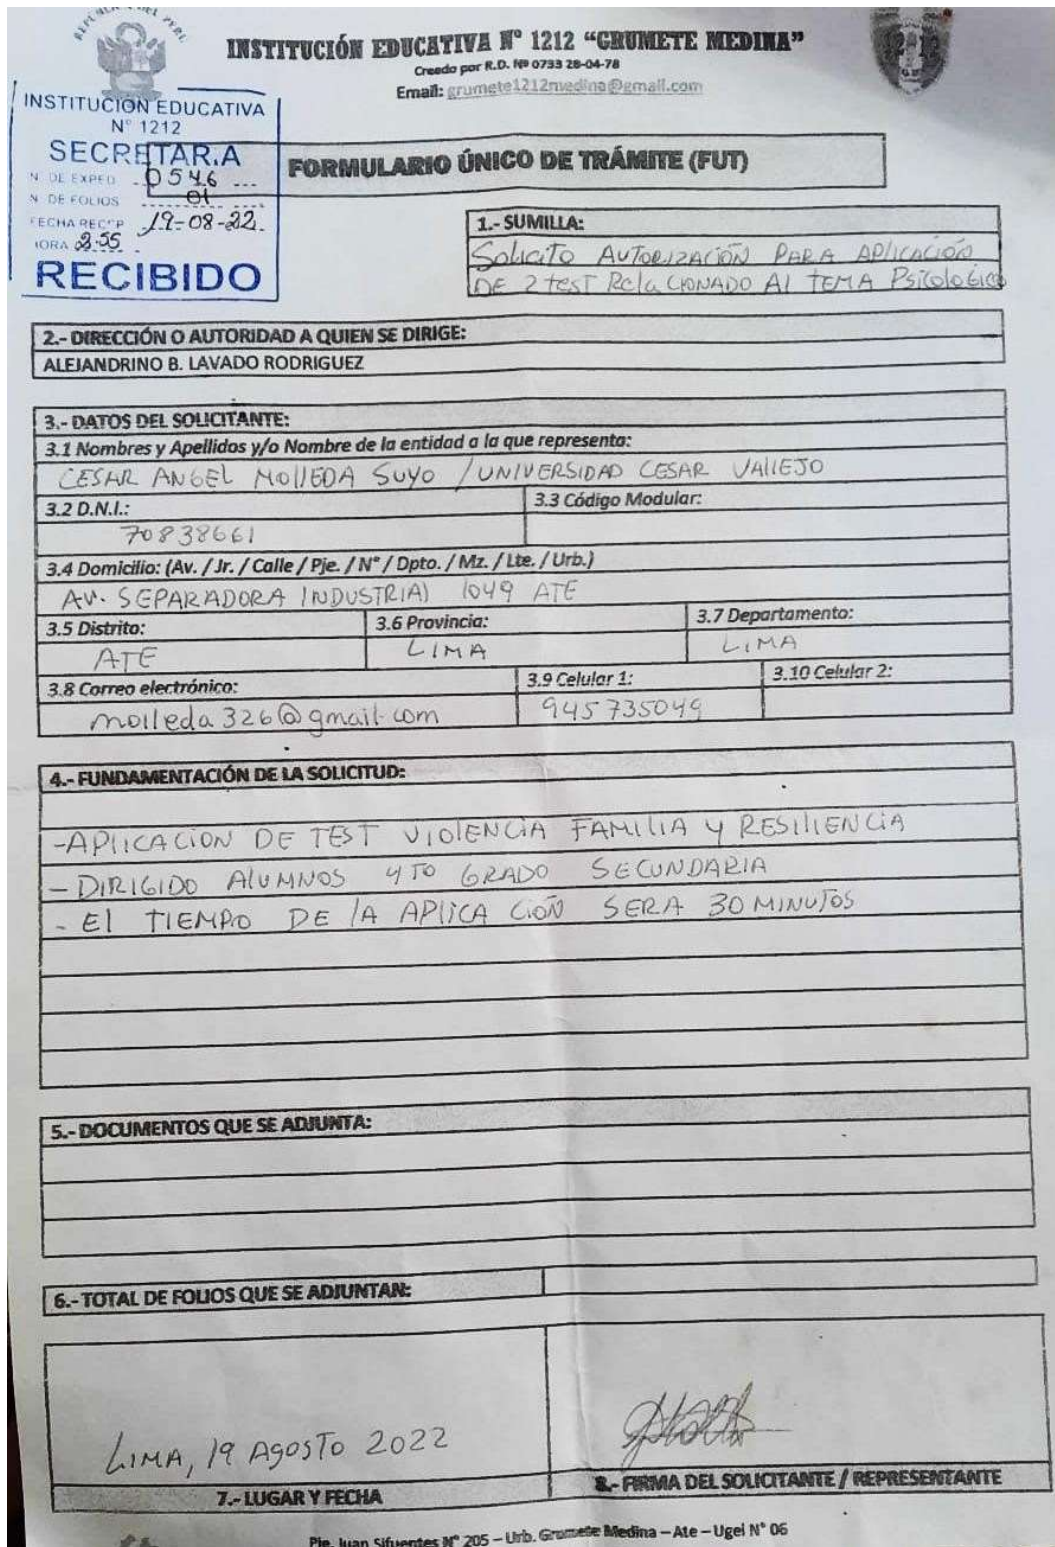 REPÚBLICA DEL PERÚ
INSTITUCIÓN EDUCATIVA N° 1212 “GRUMETE MEDINA”
Creado por R.D. Nº 0733 28-04-78
Email: grumete1212medina@gmail.com
INSTITUCIÓN EDUCATIVA
N° 1212
SECRETAR.A
N DE EXPED 0546
N DE FOLIOS 01
FECHA RECEP 19-08-22.
HORA 2:55
RECIBIDO
FORMULARIO ÚNICO DE TRÁMITE (FUT)
1.- SUMILLA:
Solicito AUTORIZACIÓN PARA APLICACIÓN
DE 2 test RelaCIONADO Al TEMA Psicologico
2.- DIRECCIÓN O AUTORIDAD A QUIEN SE DIRIGE:
ALEJANDRINO B. LAVADO RODRIGUEZ
3.- DATOS DEL SOLICITANTE:
3.1 Nombres y Apellidos y/o Nombre de la entidad a la que representa:
CESAR ANGEL MOllEDA SUYO / UNIVERSIDAD CESAR VAllEJO
3.2 D.N.I.:
3.3 Código Modular:
70838661
3.4 Domicilio: (Av. / Jr. / Calle / Pje. / N° / Dpto. / Mz. / Lte. / Urb.)
AV. SEPARADORA INDUSTRIAl 1049 ATE
3.5 Distrito:
3.6 Provincia:
3.7 Departamento:
ATE
LIMA
LIMA
3.8 Correo electrónico:
3.9 Celular 1:
3.10 Celular 2:
molleda326@gmail.com
945735049
4.- FUNDAMENTACIÓN DE LA SOLICITUD:
-APlICACION DE TEST VIOlENCIA FAMIlIA y RESIlIENCIA
- DIRIGIDO AlUMNOS 4TO GRADO SECUNDARIA
- El TIEMPO DE lA APlICACIÓN SERA 30 MINUTOS
5.- DOCUMENTOS QUE SE ADJUNTA:
6.- TOTAL DE FOLIOS QUE SE ADJUNTAN:
LIMA, 19 AgOSTO 2022
7.- LUGAR Y FECHA
8.- FIRMA DEL SOLICITANTE / REPRESENTANTE
Pje. Juan Sifuentes N° 205 – Urb. Grumete Medina – Ate – Ugel N° 06